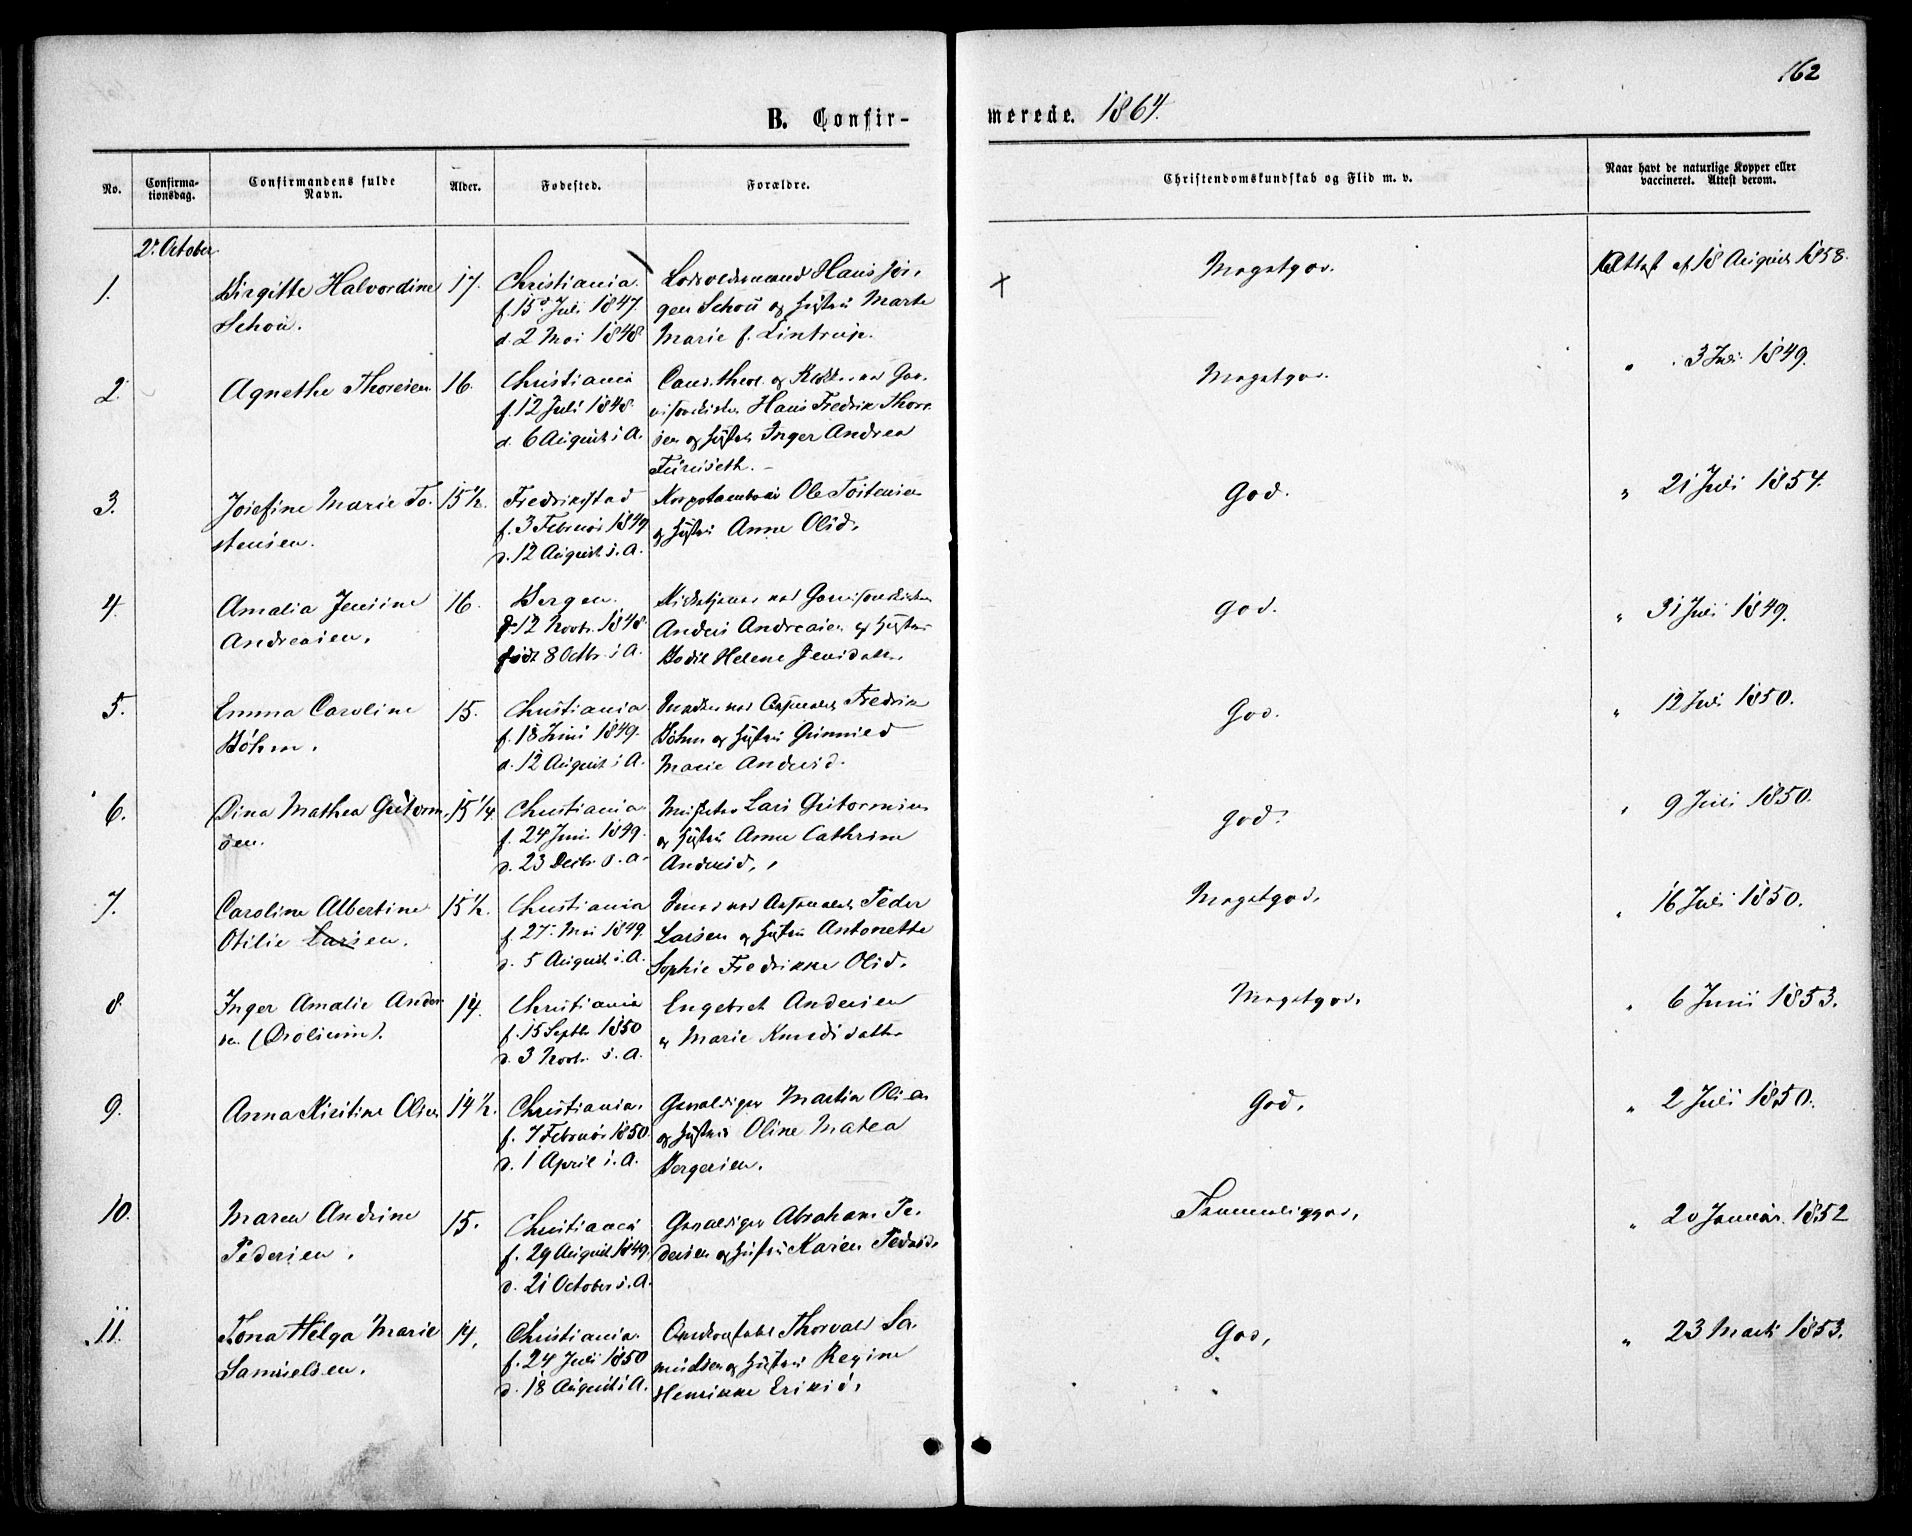 162
B. Confir-
merede. 1864.
No.
Confirma-
tionsdag.
Confirmandens fulde
Navn.
Alder.
Fødested.
Forældre.
Christendomskundskab og Flid m. v.
Naar havt de naturlige Kopper eller
vaccineret. Attest derom.
2. October
1. Birgitte Halvordine 17. Christiania Hans Jör- Megetgod. Attest af 18 August 1858.
Schou. f. 15 Juli 1847. gen Schou og Hustru Marte
d. 2 Mai 1848. Marie f. Lintrup.
2. Agnethe Thoresen 16. Christiania Cand. theol. og Megetgod. " 3 Juli 1849.
f. 12 Juli 1848. Hans Fredrik Thore-
d. 6 August i A. sen og Hustru Inger Andrea
Furuseth.
3. Josefine Marie To- 15½. Fredrikstad Ole Tostensen God. " 21 Juli 1854.
stensen. f. 3 Februar 1849 og Hustru Anne Olsd.
d. 12 August s. A.
4. Amalia Jensine 16. Bergen. ved God. " 31 Juli 1849.
Andreasen. f. 12 Novbr. 1848. Anders Andreasen og Hustru
født 8 Octbr. i A. Bodil Helene Jensdatter.
5. Emma Caroline 15. Christiania ved Fredrik God. " 12 Juli 1850.
Böhm. f. 18 Juni 1849. Böhm og Hustru Gunnild
d. 12 August i A. Marie Andersd.
6. Dina Mathea Guttorm- 15¼. Christiania Lars Guttormsen god. " 9 Juli 1850.
sen. f. 24 Juni 1849. og Hustru Anne Cathrine
d. 23 Decbr. s. a. Andersd.
7. Caroline Albertine 15½. Christiania ved Peder Megetgod. " 16 Juli 1850.
Otilie Larsen. f. 27. Mai 1849. Larsen og Hustru Antonette
d. 5 August i. A. Sophie Fredrikke Olsd.
8. Inger Amalie Ander- 14. Christiania Engebret Andersen Megetgod. " 6 Juni 1853.
sen f. 15 Septbr. 1850 og Marie Knudsdatter
d. 3 Novbr. s. A.
9. Anna Kristine Olsen 14½. Christiania. Martin Olsen God. " 2 Juli 1850.
f. 7 Februar 1850. og Hustru Oline Matea
d. 1 April i. A. Bergersen.
10. Maren Andrine 15. Christiania Abraham Pe- Temmeliggod. " 20 Januar 1852
Pedersen. f. 29 August 1849. dersen og Hustru Karen Pedersd.
d. 21 October s. A.
11. Tona Helga Marie 14. Christiania. Thorvald Sa- God. " 23 Marts 1853.
Samuelsen. f. 24 Juli 1850 muelsen og Hustru Regine
d. 18 August i A. Henrikke Eriksd.